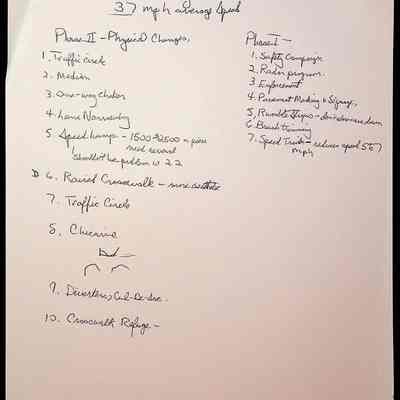 37 mph average Speed
Phase II - Physical Changes,
1. Traffic circle
2. Median
3. One-way Choker
4. Lane Narrowing
5. Speed humps - 1500-$2500 a piece
need second
shouldn't be problem w 22
D 6. Raised Crosswalk - more aesthetic
7. Traffic Circle
8. Chicane
9. Diverters, Cul-De-Sac.
10. Crosswalk Refuge -
Phase I -
1. Safety Campaign
2. Radar program.
3. Enforcement
4. Pavement Marking & Signage,
5. Rumble Strips -
6. Brush trimming
7. Speed Trailer - reduces speed 5 to 7
mph